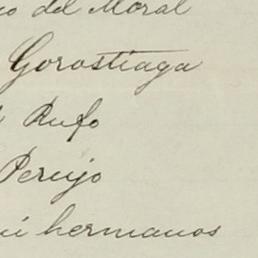 del Moral
Gorostiaga
Rufo
Perujo
hermanos